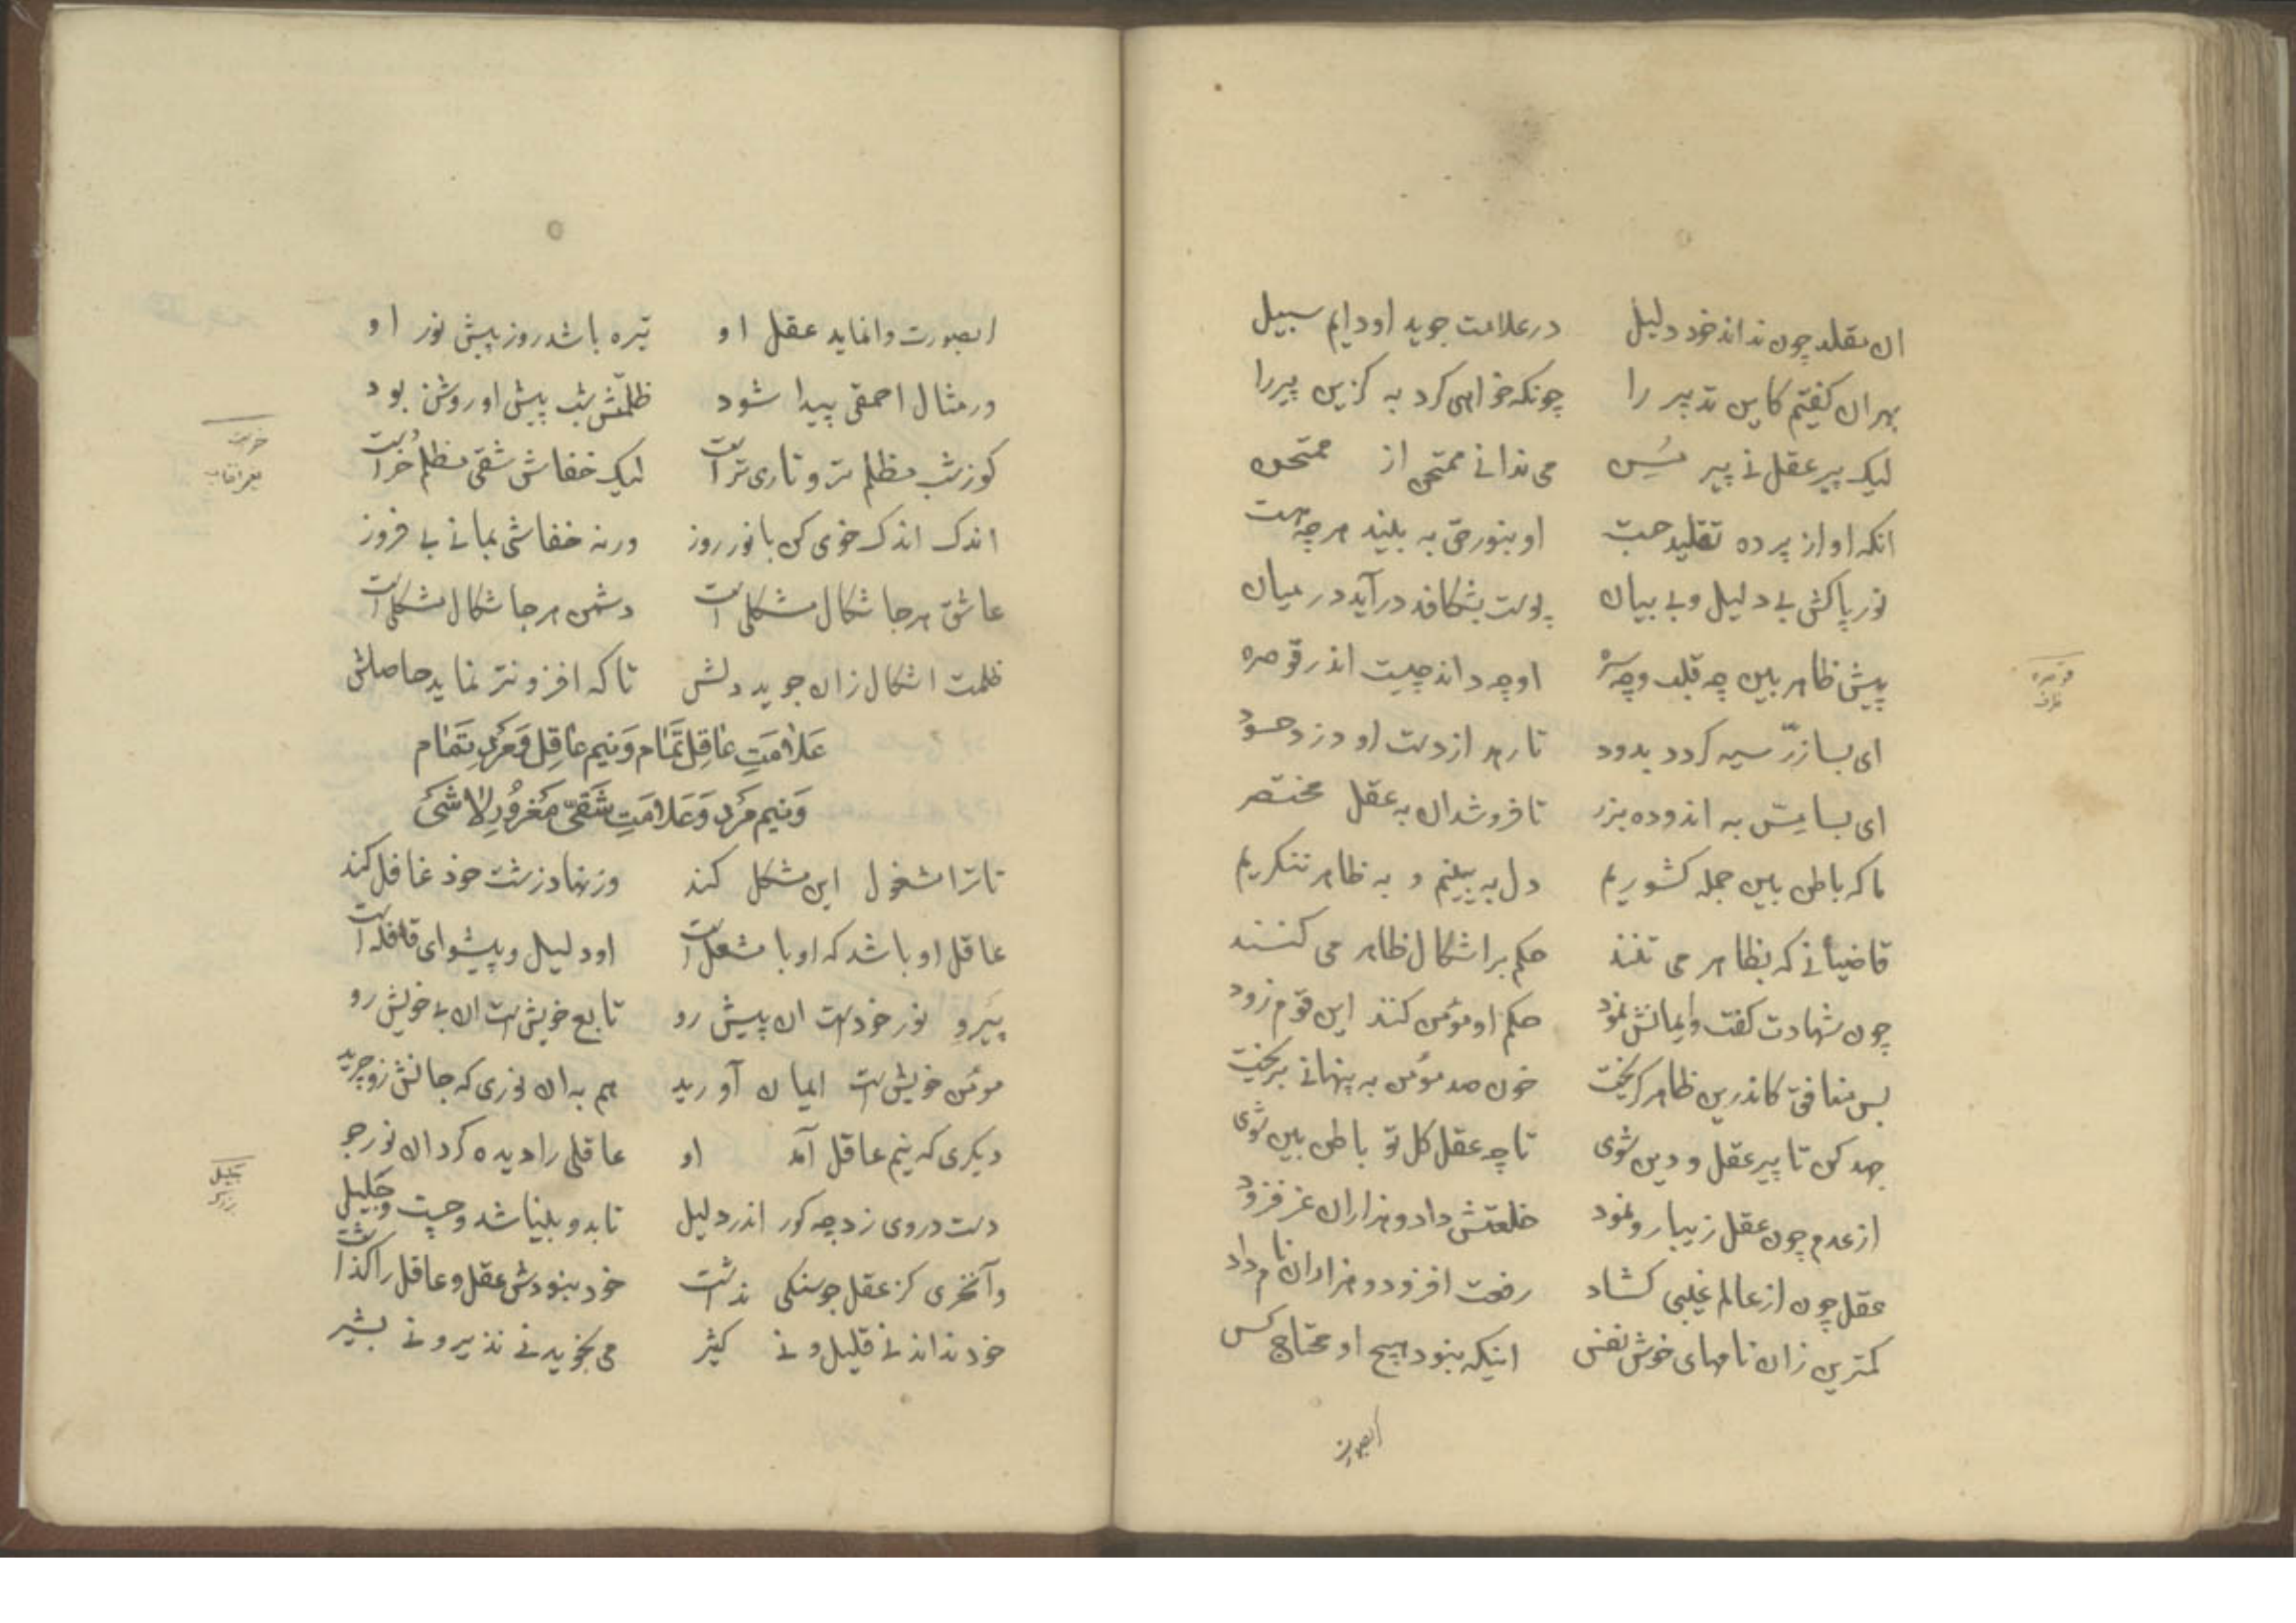 ان مقلد چون نداند خود دلیل در علامت جوید او دایم سبیل
بهر ان کفتیم کاین تدبیر را چونکه خواهی کرد به کزین پیر را
لیک پیر عقل نے پیر مسن می ندانے ممتحن از ممتحن
انکه او از پرده تقلید جست او بنور حق به بیند هرچه هست
نور پاکش بے دلیل و بے بیان پوست بشکافد درآید در میان
پیش ظاهر بین چه قلب و چه سره او چه داند چیست اندر قوصره
قوصره
ظرف
ای بسا زرّ سیه کردد بدود تا رهد از دست او دزد حسود
ای بسا مس به اندوده بزر تا فروشد ان به عقل مختصر
ما که باطن بین جمله کشوریم دل به بینیم و به ظاهر ننکریم
قاضیانے که بظاهر می تنند حکم بر اشکال ظاهر می کنند
چون شهادت کفت و ایمانش نمود حکم او مومن کنند این قوم زود
بس منافق کاندرین ظاهر کریخت خون صد مومن به پنهانے بریخت
جهد کن تا پیر عقل و دین شوی تا چه عقل کل تو باطن بین شوی
از عدم چون عقل زیبا رو نمود خلعتش داد و هزاران عز فزود
عقل چون از عالم غیبی کشاد رفعت افزود و هزاران نام داد
کمترین زان نامهای خوش نفس اینکه نبود هیچ او محتاج کس
ابصورت
ابصورت وانماید عقل او تیره باشد روز پیش نور او
ور مثال احمقی پیدا شود ظلمتش شب پیش او روشن بود
کوز شب مظلم تر و تاری تر است لیک خفاش شقی مظلم خر است
اندک اندک خوی کن با نور روز ورنه خفاشی بمانے بے فروز
عاشق هر جا شکال مشکلی است دشمن هر جا شکال مشکلی است
ظلمت اشکال زان جوید دلش تا که افزونتر نماید حاصلش
عَلامَتِ عاقِل تَمام وَنیم عاقِل وَمَردِ تَمام
وَنیم مَرد وَعَلامَتِ شَقیّ مَغرُورِ لا شَیَ
تا ترا مشغول این مشکل کند وز نهاد زشت خود غافل کند
عاقل او باشد که او با مشعل است او دلیل و پیشوای قافله است
پیَروِ نور خودست ان پیش رو تابع خویش ست ان بے خویش رو
مومن خویش ست ایمان آورید هم به ان نوری که جانش زو چرید
دیکری که نیم عاقل آمد او عاقلی را دیده کرد ان نور جو
دست در وی زد چه کور اندر دلیل تا بدو بینا شد و چست و جَلیل
جلیل
بزرک
وآنخری کز عقل جوسنکی نداشت خود نبودش عقل و عاقل را کذاشت
خود نداند نے قلیل و نے کثیر می بخوید نے نذیر و نے بشیر